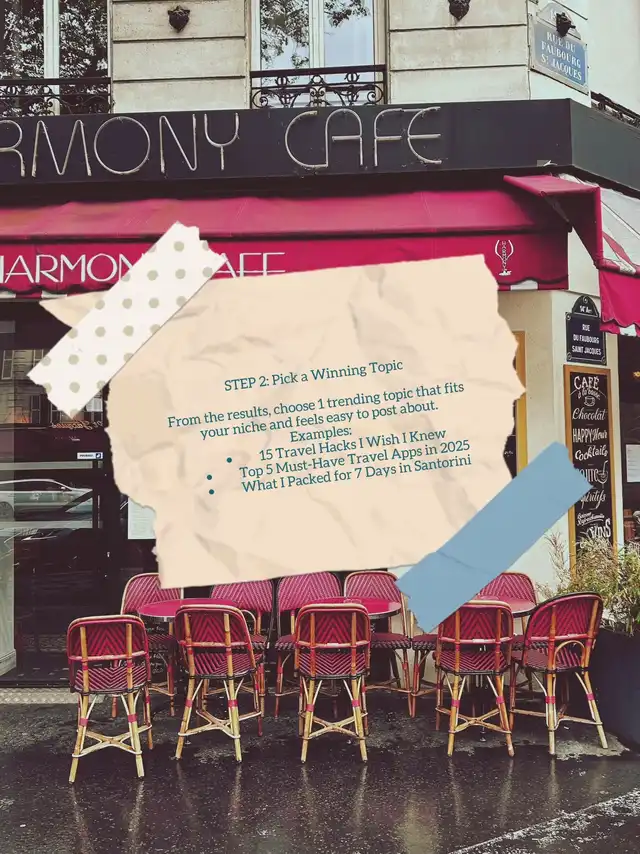 RUE DU
FAUBOURG
ST JACQUES
RMONY CAFE
HARMON
AFE
14e Arrt
RUE
DU FAUBOURG
SAINT JACQUES
CAFÉ
Chocolat
HAPPY Hour
Cocktails
VINS
STEP 2: Pick a Winning Topic
From the results, choose 1 trending topic that fits
your niche and feels easy to post about.
Examples:
• 15 Travel Hacks I Wish I Knew
• Top 5 Must-Have Travel Apps in 2025
• What I Packed for 7 Days in Santorini